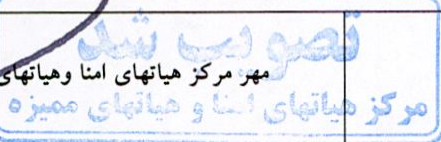 تصویب شد
مهر مرکز هیاتهای امنا وهیاتهای
مرکز هیاتهای امنا و هیاتهای ممیزه